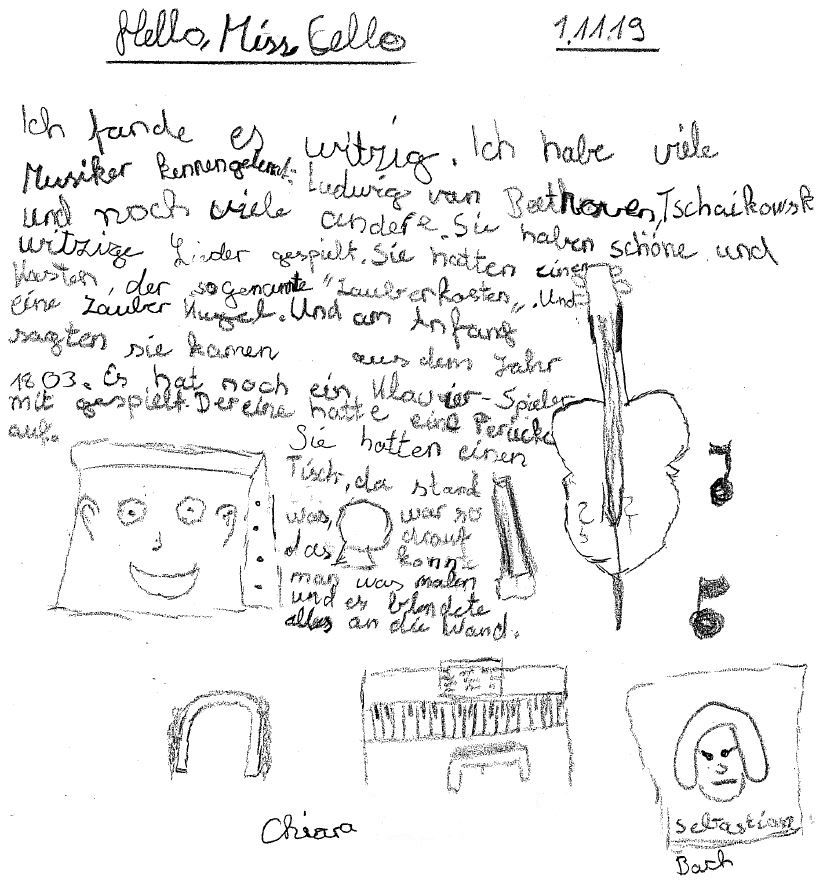 Hello, Miss Cello
1.11.19
Ich fande es witzig. Ich habe viele
Musiker kennengelernt: Ludwig van Beethoven, Tschaikowsk
und noch viele andere. Sie haben schöne und
witzige Lieder gespielt. Sie hatten einen
Kasten, der sogenannte "Zauberkasten". Und
eine Zauber Kugel. Und am Anfang
sagten sie kamen aus dem Jahr
1803. Es hat noch ein Klavier-Spieler
mit gespielt. Der eine hatte eine Perücke
auf.
Sie hatten einen
Tisch, da stand
was, war so
das drauf
konnte
man was malen
und es blendete
alles an die Wand.
Sebastian
Bach
Chiara